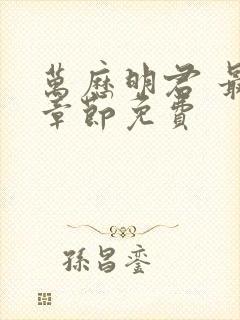 萬歷明君 最
章節免費
孫昌鑾